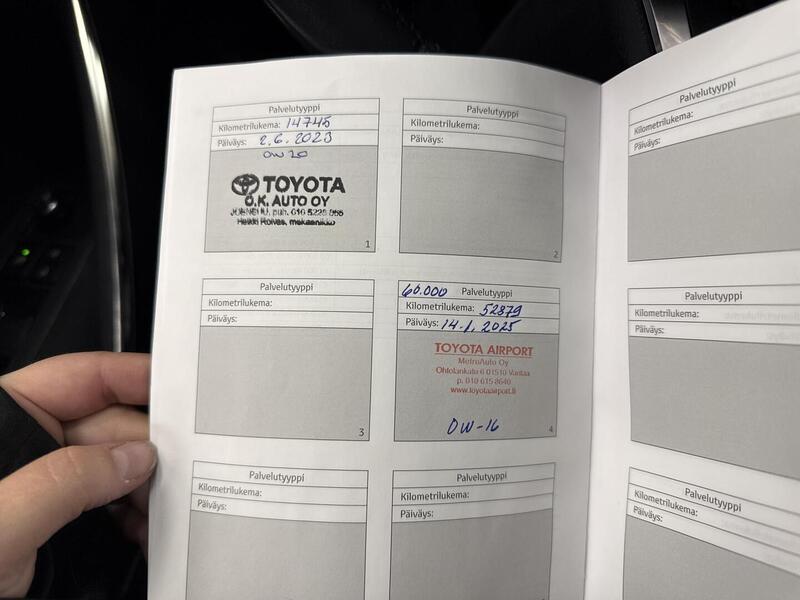 Palvelutyyppi
Kilometrilukema: 14745
Päiväys: 2.6.2023
OW20
TOYOTA
O.K. AUTO OY
JOENSUU, puh. 010 5228 955
Heikki Roivas, mekaanikko
1
Palvelutyyppi
Kilometrilukema:
Päiväys:
2
Palvelutyyppi
Kilometrilukema:
Päiväys:
3
60.000 Palvelutyyppi
Kilometrilukema: 52879
Päiväys: 14.1.2025
TOYOTA AIRPORT
MetroAuto Oy
Ohtolankatu 6 01510 Vantaa
p. 010 615 8640
www.toyotaairport.fi
OW-16
4
Palvelutyyppi
Kilometrilukema:
Päiväys:
Palvelutyyppi
Kilometrilukema:
Päiväys:
Palvelutyyppi
Kilometrilukema:
Päiväys:
Palvelutyyppi
Kilometrilukema:
Päiväys:
Palvelutyyppi
Kilometrilukema:
Päiväys: